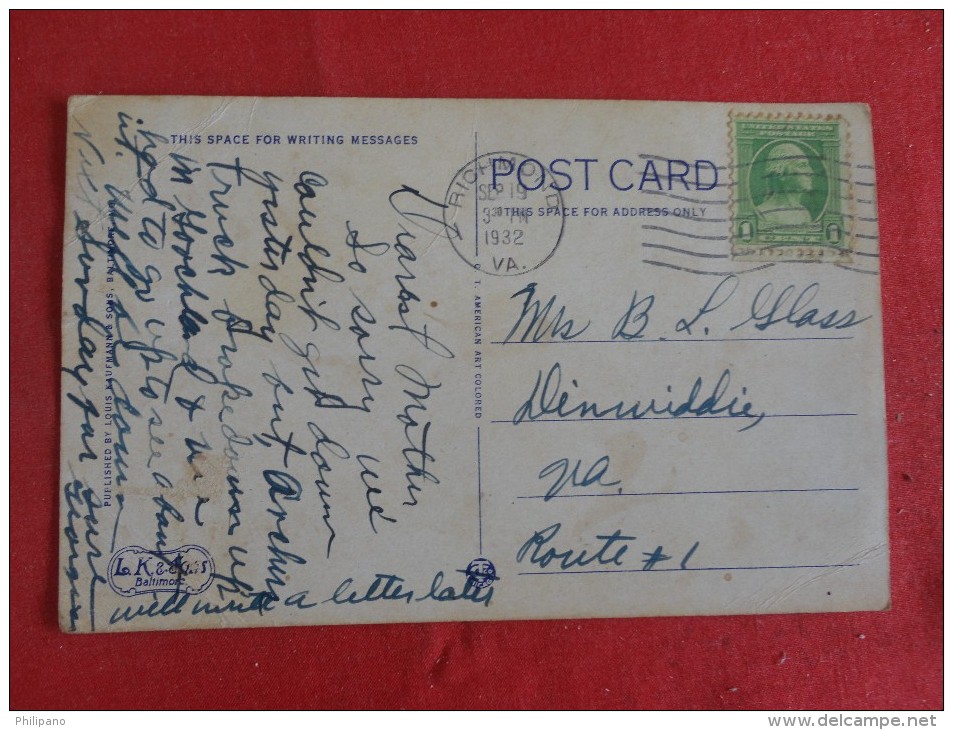 THIS SPACE FOR WRITING MESSAGES
POST CARD
THIS SPACE FOR ADDRESS ONLY
RICHMOND
SEP 19
3 30 PM
1932
VA.
UNITED STATES
POSTAGE
Mrs B. L. Glass
Dinwiddie,
Va.
Route #1
Dearest Mother
So sorry we
couldn't get down
yesterday but, Archer's
truck broke down up
in Goochland & we
had to go up to see about
it. Will be down
Next Sunday for sure
will write a letter later
PUBLISHED BY LOUIS KAUFMANN & SONS, BALTIMORE
C. T. AMERICAN ART COLORED
L. K. & Sons
Baltimore
Philipano
www.delcampe.net